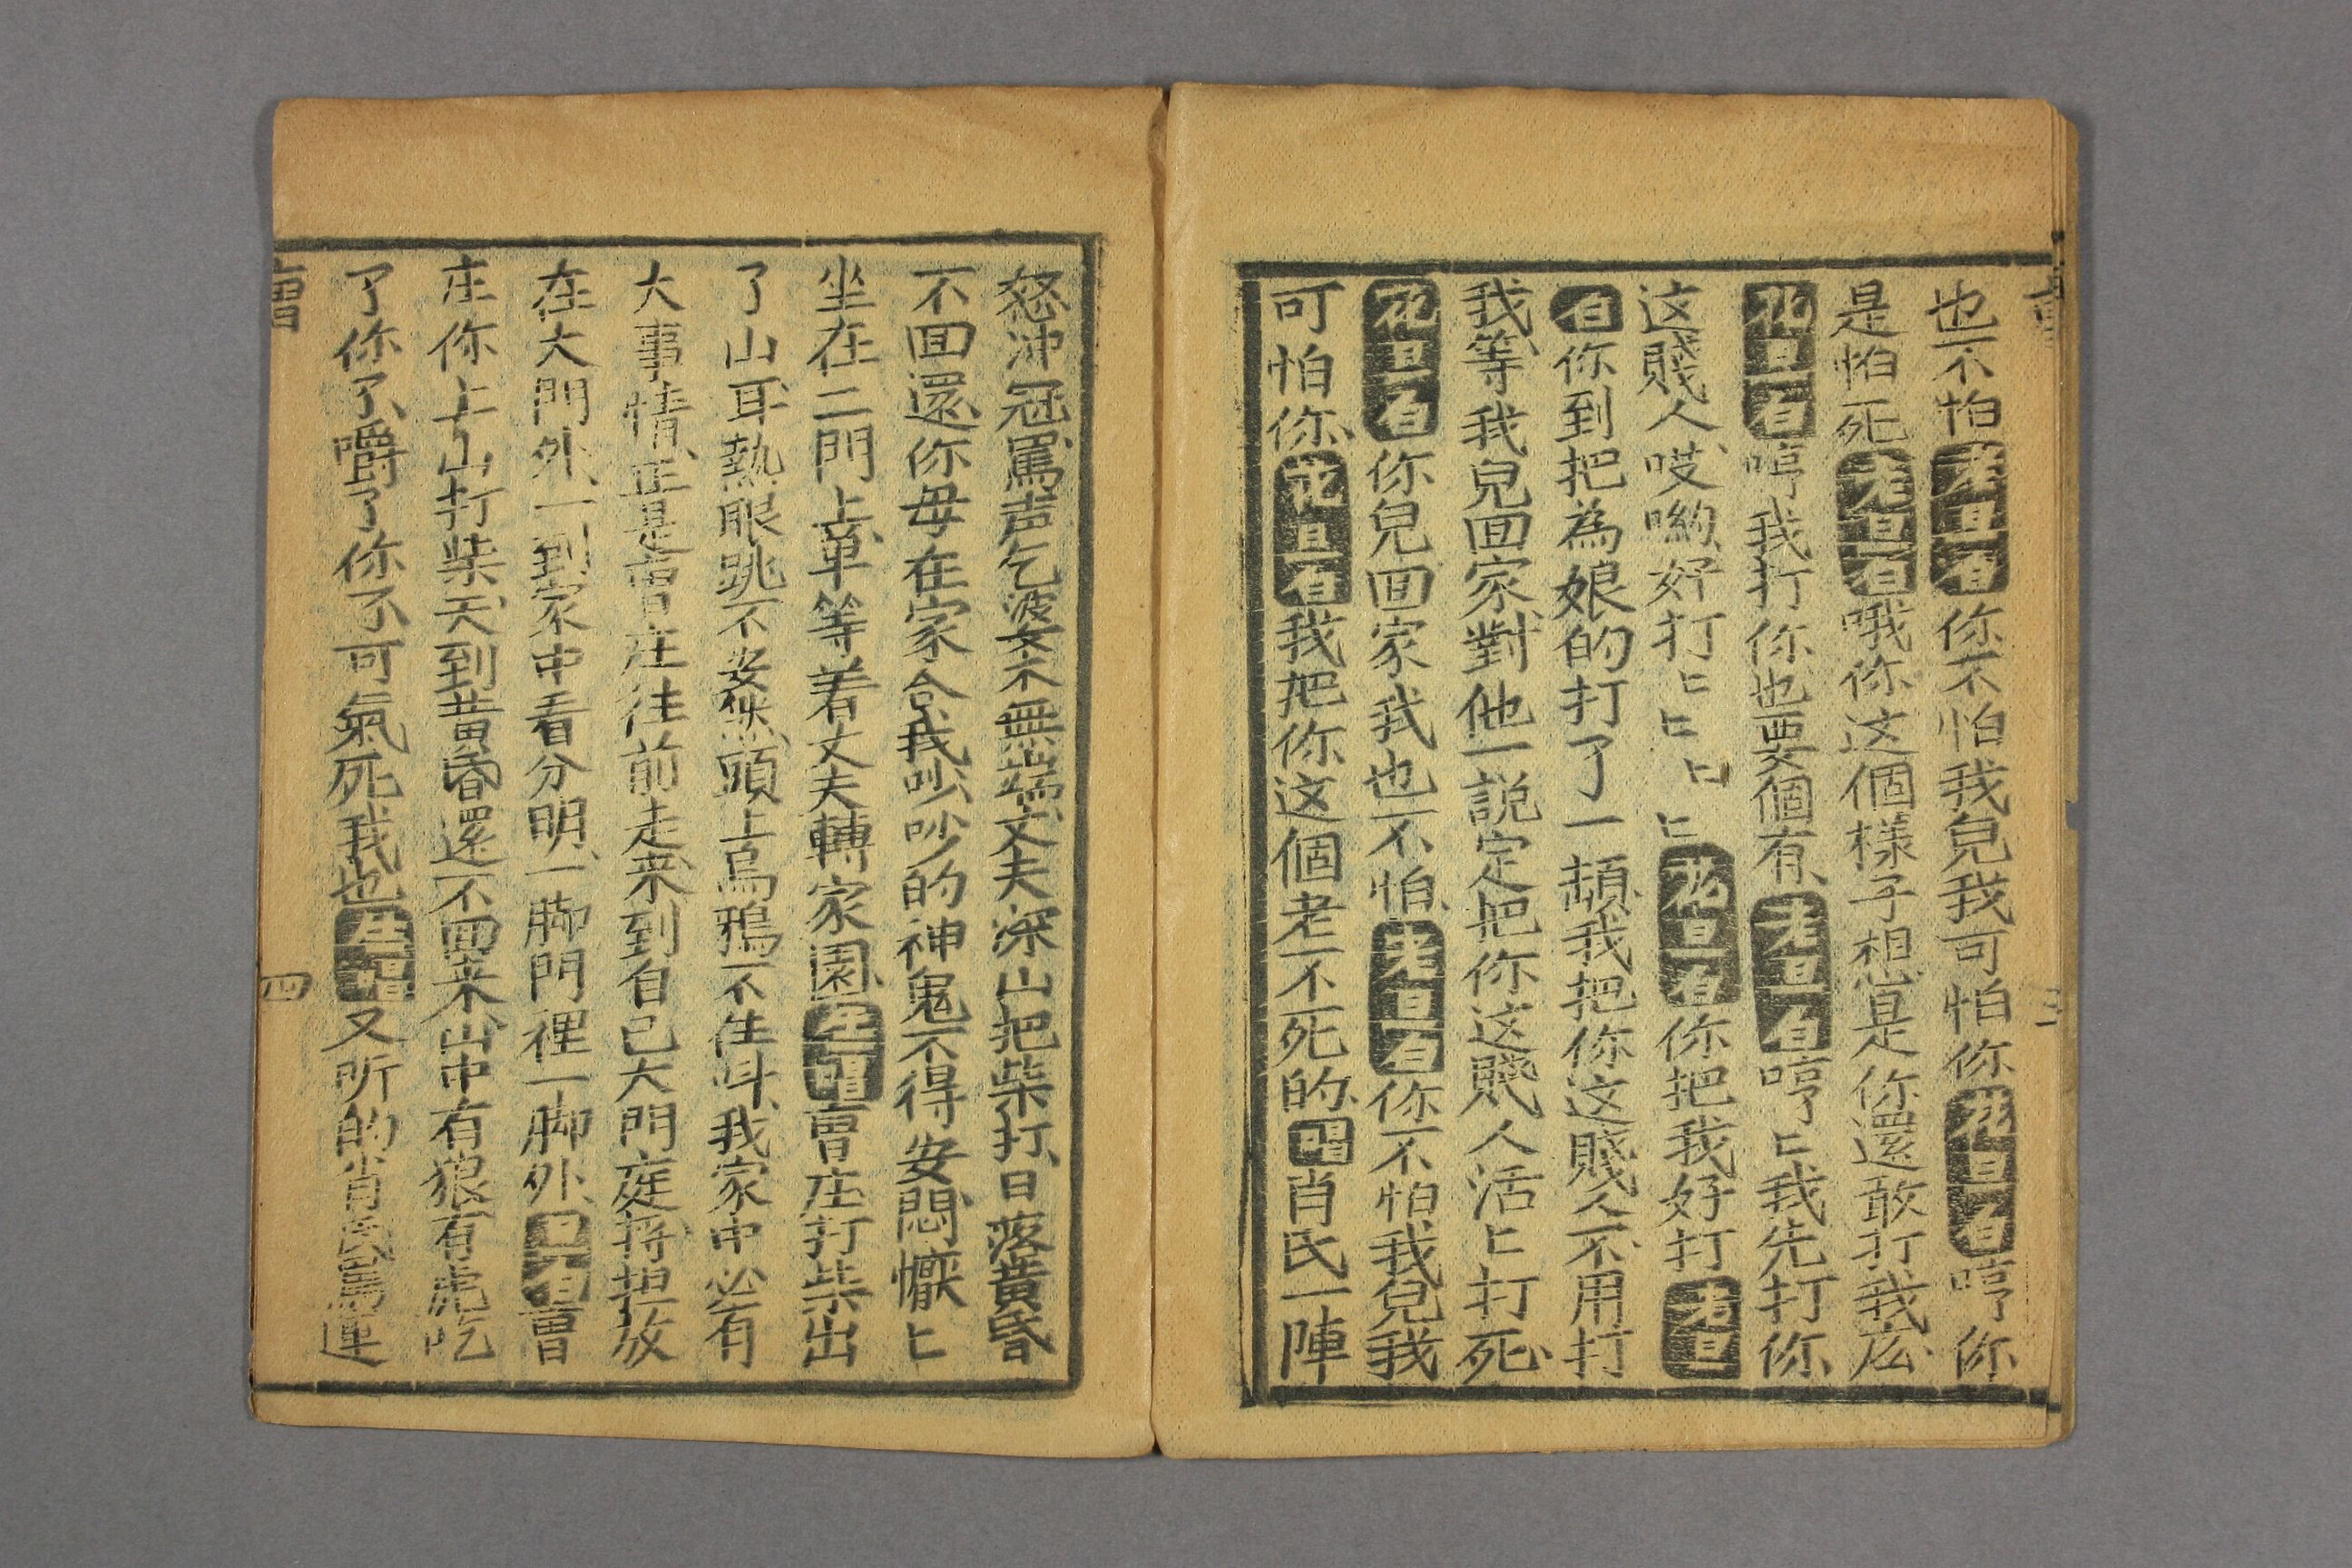 也不怕老旦白你不怕我兒我可怕你花旦白哼你
是怕死老旦白哦你这個樣子想是你還敢打我庅
花旦白哼我打你也要個有老旦白哼匕我先打你
这賤人哎喲好打匕匕匕匕花旦白你把我好打老旦
白你到把為娘的打了一頓我把你这賤人不用打
我等我兒回家對他一説定把你这賤人活匕打死
花旦白你兒回家我也不怕老旦白你不怕我兒我
可怕你花旦白我把你这個老不死的唱肖氏一陣
三
怒冲冠罵声乞婆禾無端丈夫深山把柴打日落黄昏
不回還你母在家合我吵吵的神鬼不得安悶懨匕
坐在二門上單等着丈夫轉家園生唱曹庄打柴出
了山耳熱眼跳不安然頭上烏鴉不住叫我家中必有
大事情正是曹庄往前走来到自己大門庭将担放
在大門外一到家中看分明一脚門裡一脚外旦唱曹
庄你上山打柴天到黄昏還不回来山中有狼有虎吃
了你了嚼了你了可氣死我也生唱又听的肖氏罵連
曹
四